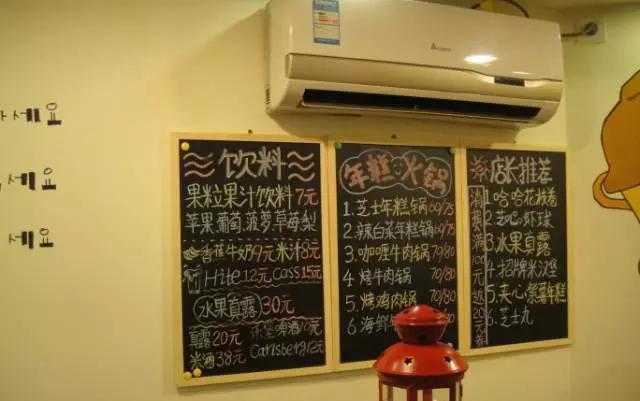 세요
세요
세요
饮料
果粒果汁饮料 7元
苹果.葡萄.菠萝.草莓梨
香蕉牛奶9元 米汁8元
Hite 12元 Cass 15元
水果真露 30元
真露20元 啤酒10元
米酒38元 Carlsberg 12元
年糕火锅
1.芝士年糕锅 69/75
2.辣白菜年糕锅 69/75
3.咖喱牛肉锅 70/80
4.烤牛肉锅 70/80
5.烤鸡肉锅 70/80
6.海鲜
店长推荐
1.哈哈花枝卷
2.芝心虾球
3.水果真露
4.招牌米汉堡
5.夹心紫薯年糕
6.芝士丸
消费满100元送20元券